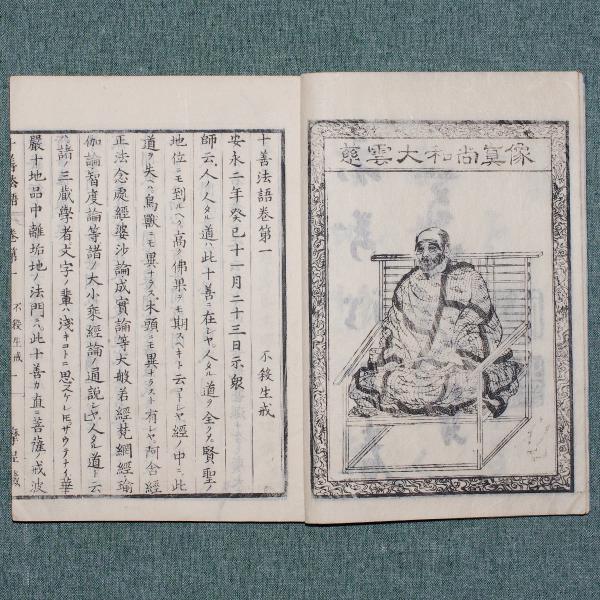 慈雲大和尚眞像
十善法語卷第一 不殺生戒
安永二年癸巳十一月二十三日示衆
師云人ノ人タル道ハ此十善ニ在ジヤ人タル道ヲ全クシテ賢聖ノ
地位ニモ到ルベク高ク佛果ヲモ期スベキト云コトジヤ經ノ中ニ此
道ヲ失ヘバ鳥獸ニモ異ナラズ木頭ニモ異ナラズト有ジヤ阿含經
正法念處經婆沙論成實論等大般若經梵網經瑜
伽論智度論等諸ノ大小乘經論ノ通説ジヤ人タル道ト云
ハ諸ノ三藏學者文字ノ輩ハ淺キコトニ思ヘケレドモサウデナイ華
嚴十地品中離垢地ノ法門ニ此十善ガ直ニ菩薩戒波
十善法語 卷第一 不殺生戒